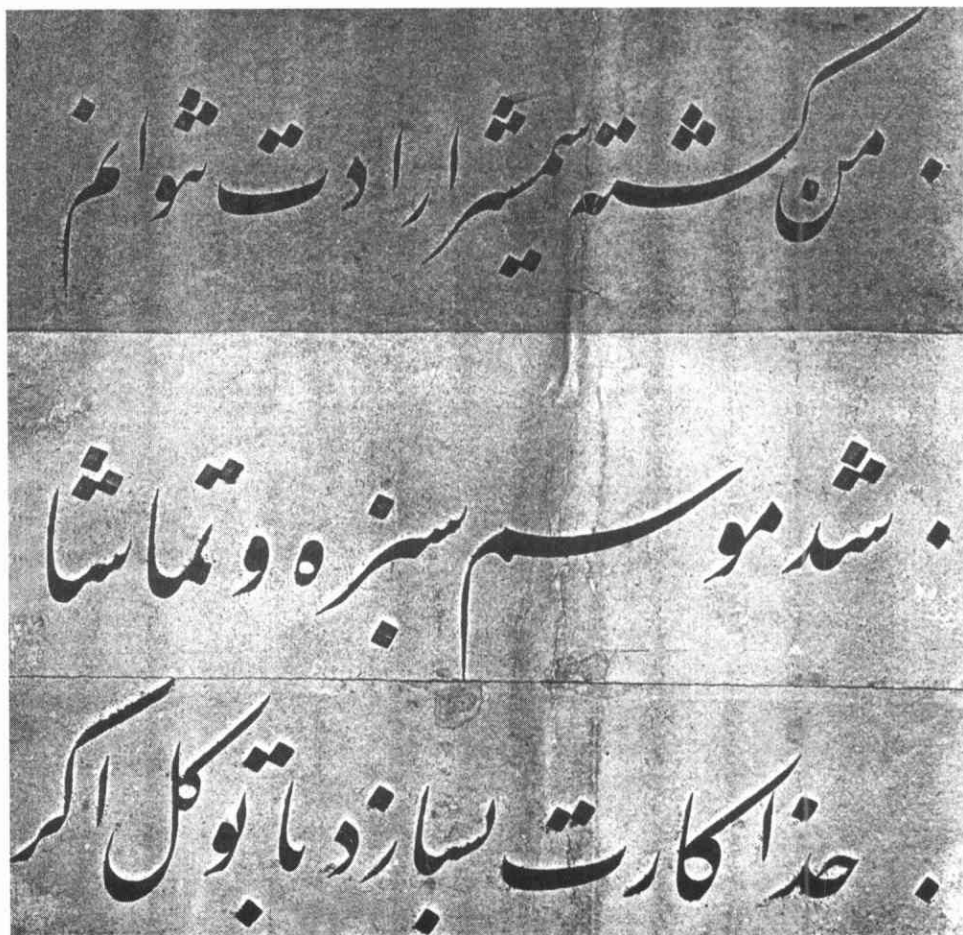 من کشته شمشیر ارادت نتوانم
شد موسم سبزه و تماشا
خدا کارت بسازد با توکل اکر